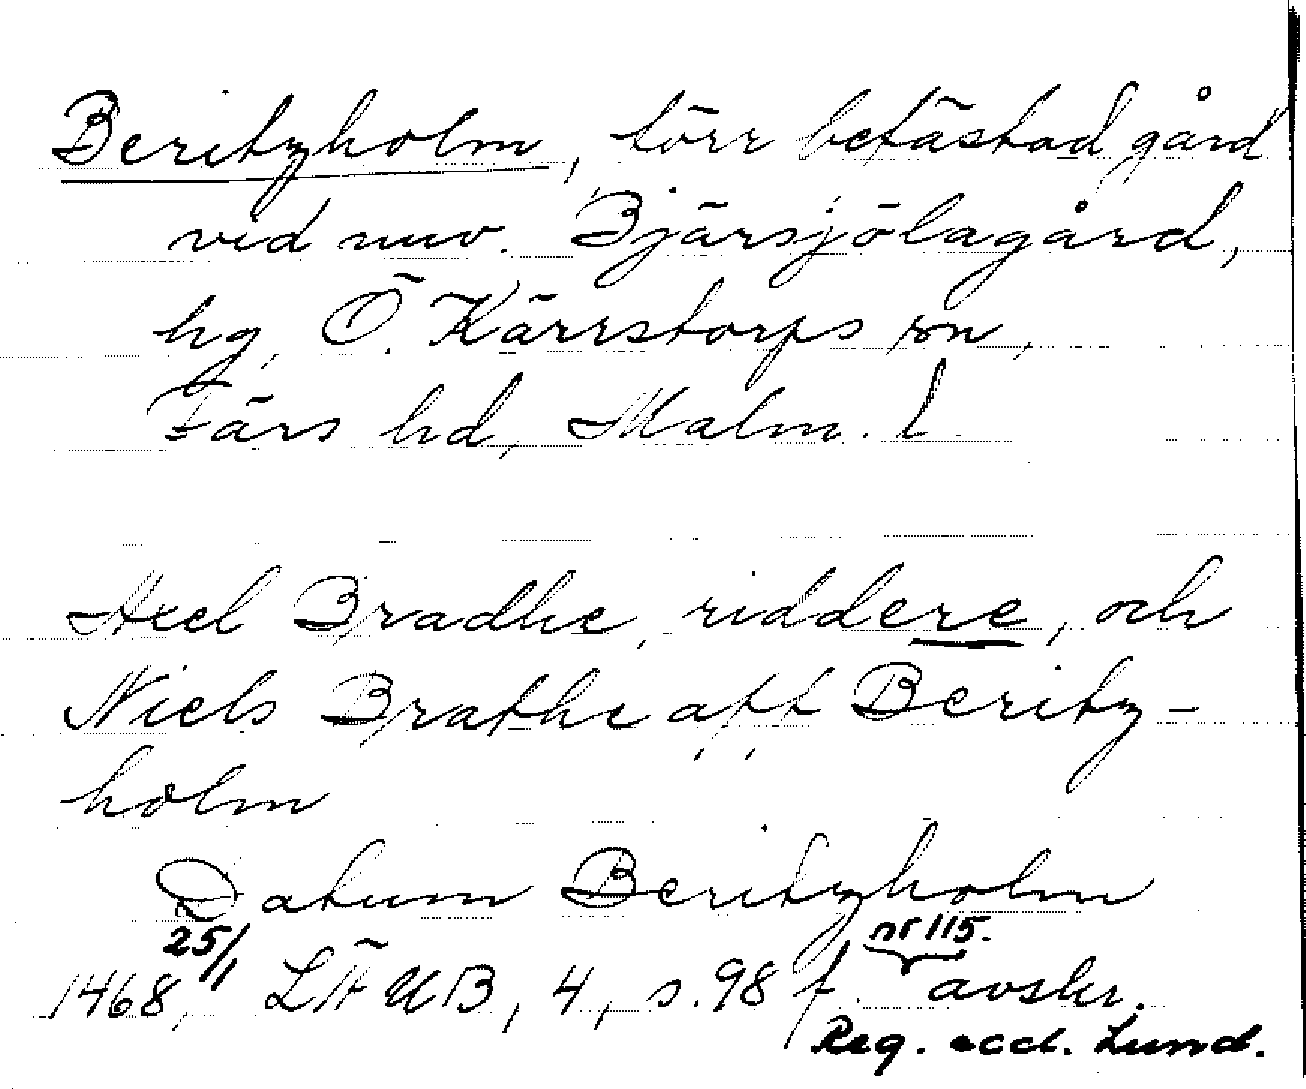 Beritzholm, förr befästad gård
vid nuv. Bjärsjölagård,
hg, Ö. Kärrstorps sn,
Färs hd, Malm. l
Axel Bradhe, riddere, och
Niels Brathe aff Beritz-
holm
Datum Beritzholm
25/1 nr 115.
1468, LÄUB, 4, s. 98 f. avskr.
Reg. eccl. Lund.